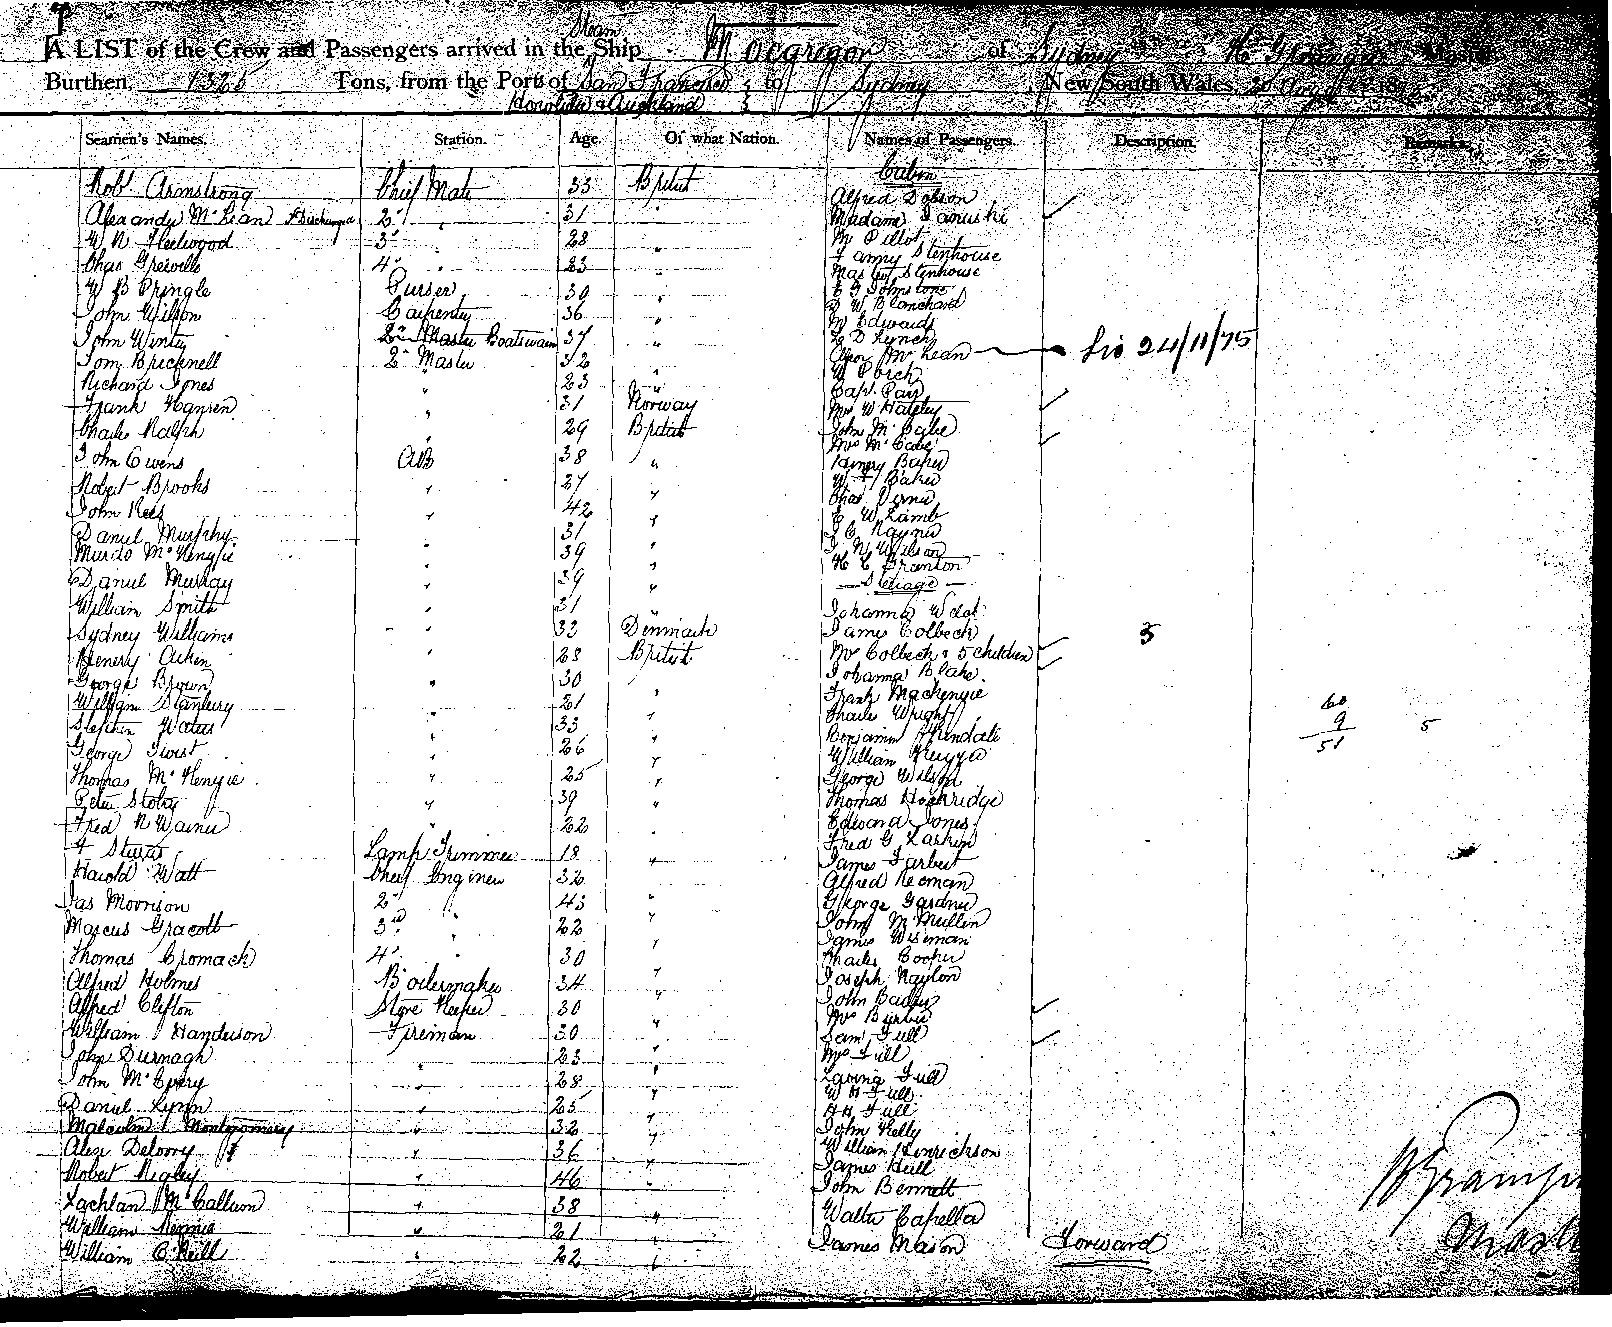 A LIST of the Crew and Passengers arrived in the Steam Ship Macgregor of Sydney
Burthen, 1326 Tons, from the Ports of San Francisco to Sydney New South Wales,
Honolulu & Auckland
Seamen's Names. Station. Age. Of what Nation. Names of Passengers. Description. Remarks.
Cabin
Robt Armstrong Chief Mate 33 British Alfred Dobson
Alexander McLean Discharged 2d " 31 " Madame
W N Fleetwood 3d " 28 " Mr Pillot
Chas Greville 4th " 23 " Fanny Stenhouse
W B Pringle Purser 30 " Master Stenhouse
E G Johnstone
John Wilson Carpenter 36 " D W Blanchard
Mr Edwards
John Winter Boatswain 37 " D Lynch
Tom Bricknell 2d Master 32 " McLean 24/11/75
Richard Jones " 23 " W Porch
Frank Hansen " 31 Norway Capt. Parr
Mr W Hatfley
Charles Ralph " 29 British John McCabe
Mrs McCabe
John Owens AB 38 " Henery Baker
Robert Brooks " 27 " Baker
John Rees " 42 " Chas
E W Lamb
Daniel Murphy " 31 " J E Raynor
Murdo McKenzie " 39 " J N Wilson
H C Branton
Daniel Murray " 39 " Steerage
William Smith " 31 " Johanna
Sydney Williams " 32 Denmark James Colbeck 5
Henery Aiken " 28 British Mrs Colbeck & 5 children
George Brown " 30 " Johanna Blake
William Stanbury " 21 " Frank Mackenzie 60
Stephen Waters " 33 " Charles Wright 9 5
Benjamin 51
George Twist " 26 " William
Thomas McKenzie " 25 " George Wilson
Peter " 39 " Thomas Hockridge
Fred N Warner " 22 " Edward Jones
Fred G Larkin
F Stewart Lamp Trimmer 18 " James Tarbert
Harold Watt Chief Engineer 32 Alfred
Jas Morrison 2d " 43 " George Gardner
Marcus Gracott 3rd " 22 " John McMullin
James Wiseman
Thomas Cromach 4th " 30 " Charles Cooper
Alfred Holmes Boilermaker 34 " Joseph Naylon
Alfred Clifton Store Keeper 30 " John
Mrs
William Handerson Fireman 30 " Sam Tull
John Durnagh " 23 " Mrs Tull
John McEvery " 28 " Lavina Tull
W H Tull
Daniel Lynn " 25 " H H Tull
Malcolm Montgomery " 32 " John Kelly
Alex Deloory " 36 " William Henrickson
Robert Rigley " 46 " James Hull
John Bennett
Lachlan McCallum " 38 " Walter Capella
William " 21 "
William O'Neill " 22 " James Mason Forward